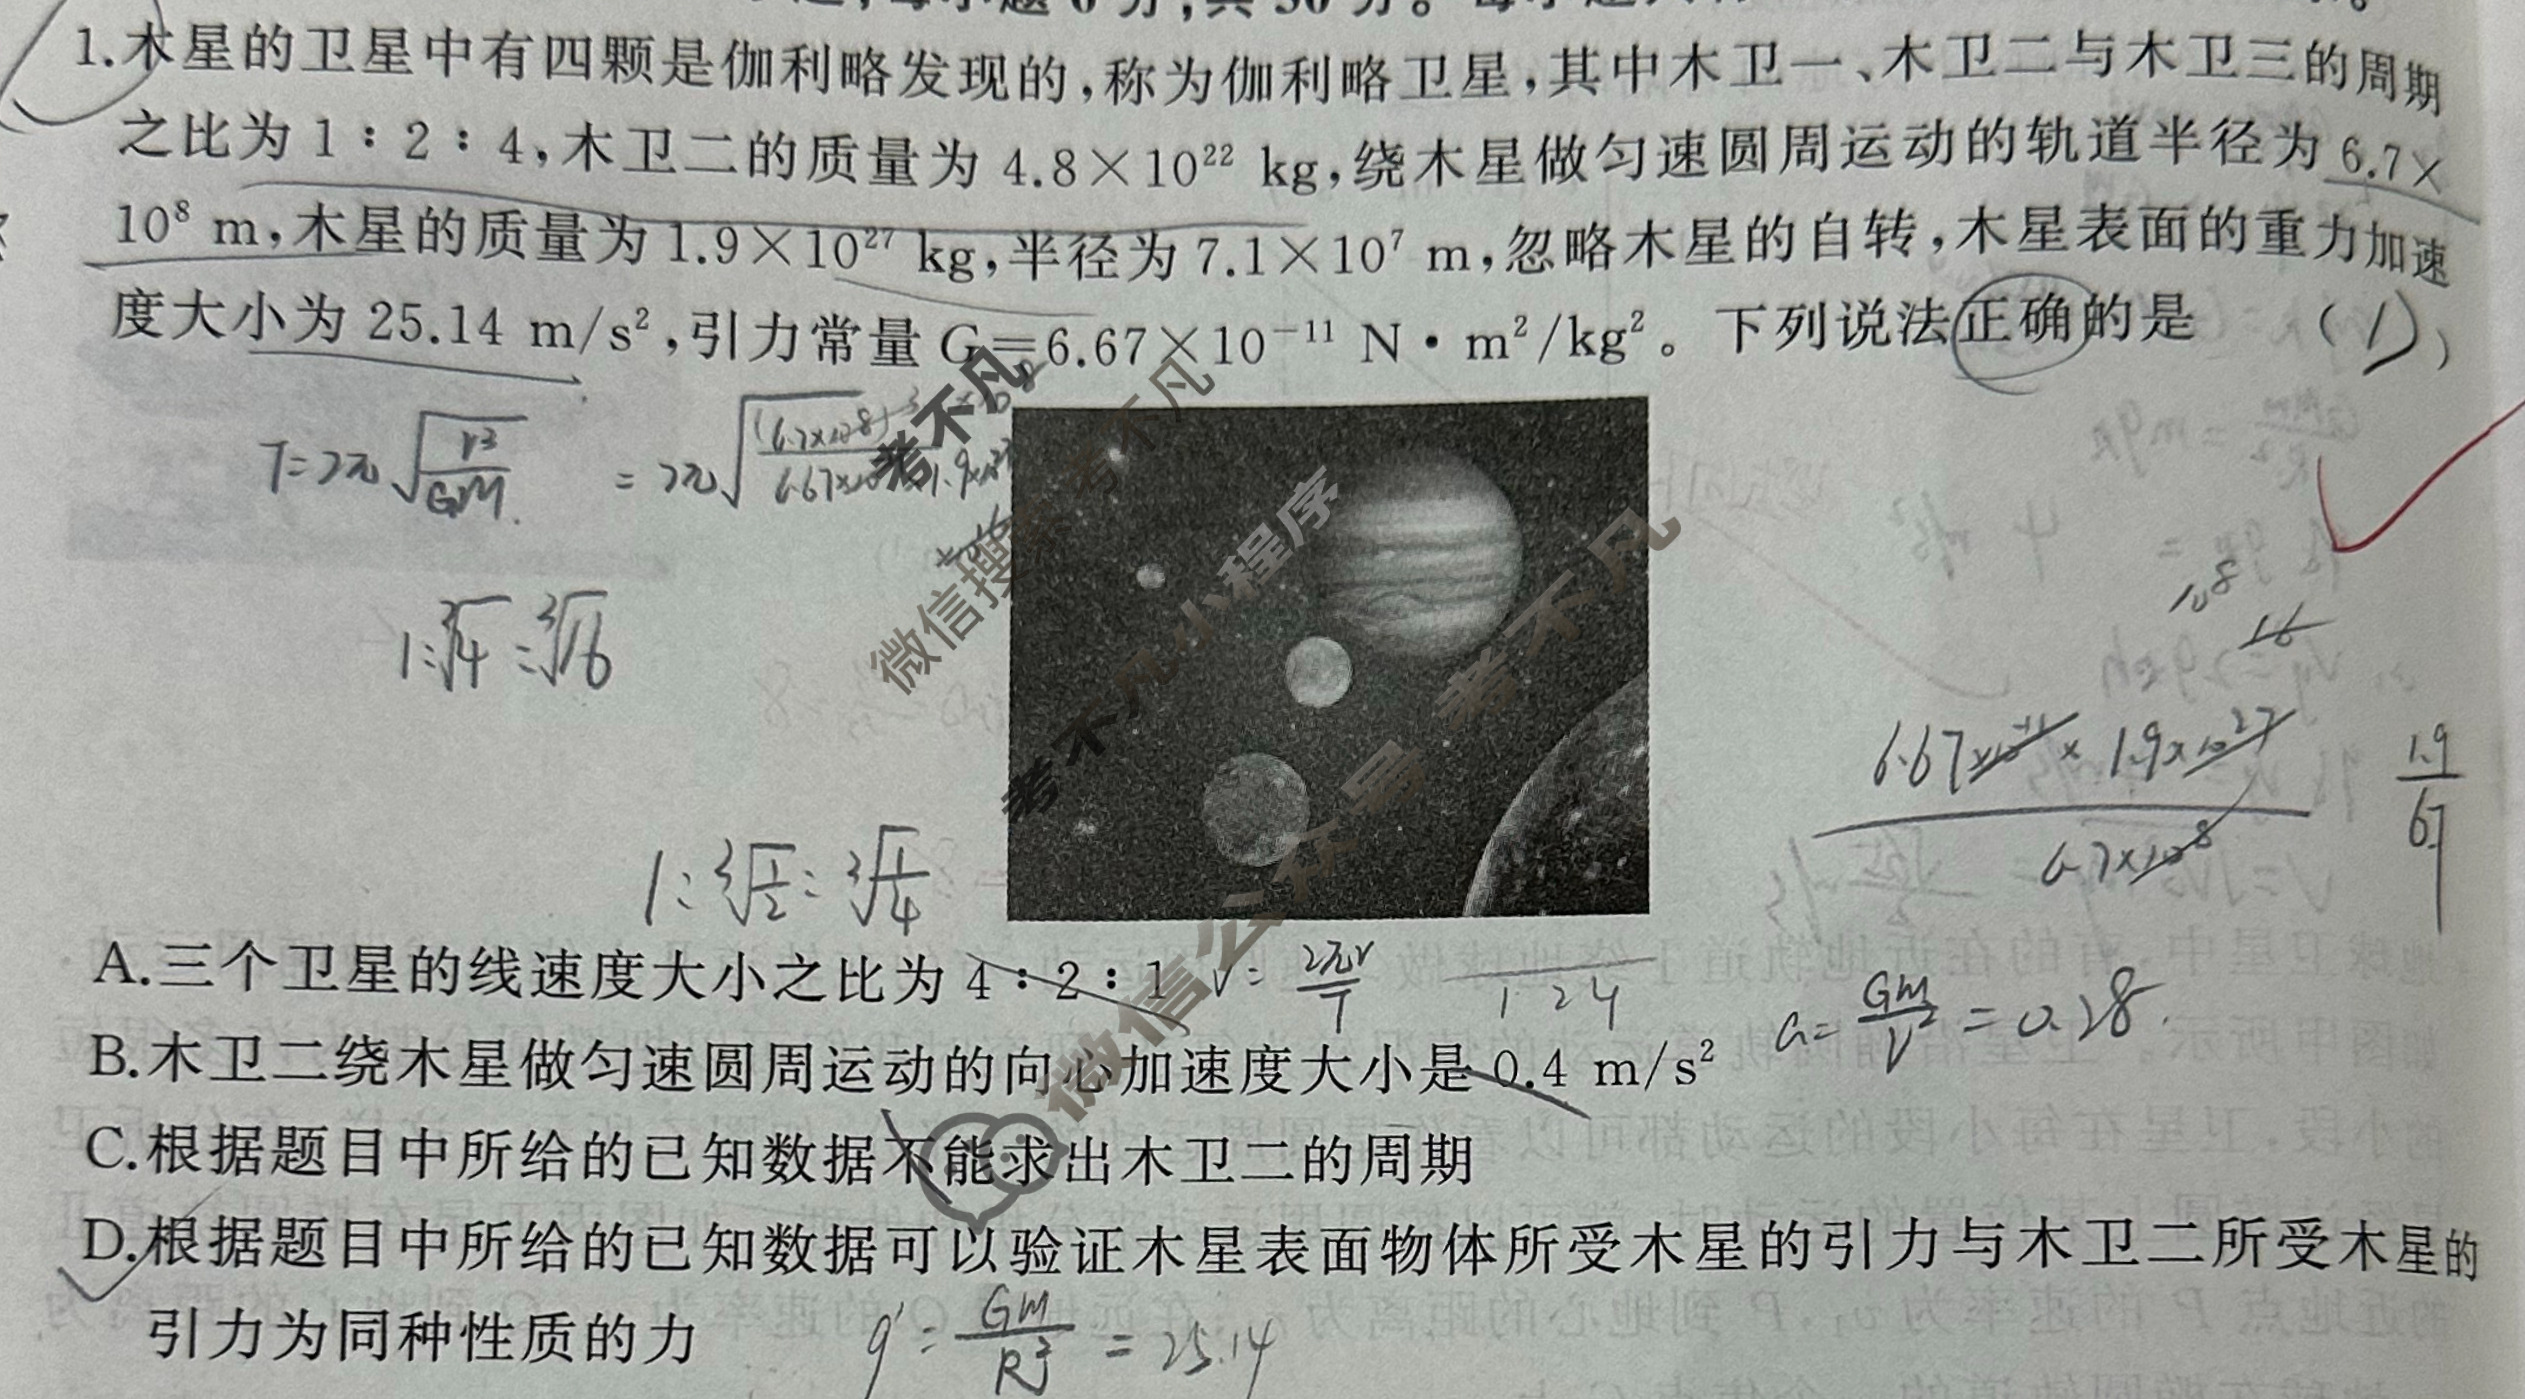 1.木星的卫星中有四颗是伽利略发现的,称为伽利略卫星,其中木卫一、木卫二与木卫三的周期
之比为1∶2∶4,木卫二的质量为4.8×10²² kg,绕木星做匀速圆周运动的轨道半径为6.7×
10⁸ m,木星的质量为1.9×10²⁷ kg,半径为7.1×10⁷ m,忽略木星的自转,木星表面的重力加速
度大小为25.14 m/s²,引力常量G=6.67×10⁻¹¹ N·m²/kg²。下列说法正确的是 ( D )
T=2π√(r³/GM)
1:∛4:∛16
考不凡
微信搜索 考不凡
考不凡小程序
微信公众号 考不凡
6.67×10⁻¹¹×1.9×10²⁷
6.7×10⁸
1.9
6.7
1:∛(1/2):∛(1/4)
A.三个卫星的线速度大小之比为4∶2∶1 v=2πr/T
1 2 4
a=GM/r²=0.28.
B.木卫二绕木星做匀速圆周运动的向心加速度大小是0.4 m/s²
C.根据题目中所给的已知数据不能求出木卫二的周期
D.根据题目中所给的已知数据可以验证木星表面物体所受木星的引力与木卫二所受木星的
引力为同种性质的力
g'=GM/R²=25.14